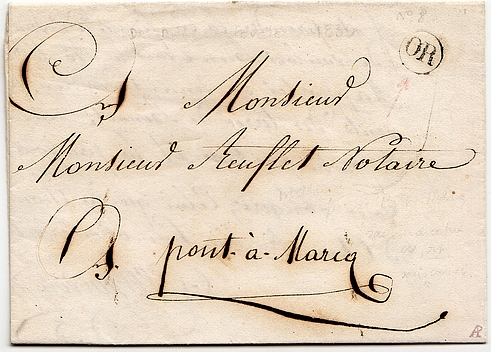 OR
A Monsieur
Monsieur Reufflet Notaire
A pont-à-Marcq